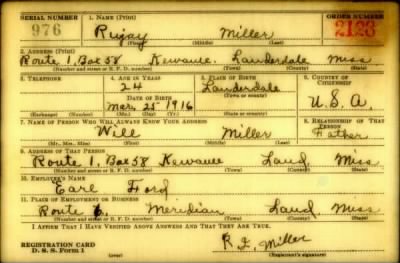 SERIAL NUMBER 1. NAME (Print) ORDER NUMBER
976 Rujay Miller 2123
(First) (Middle) (Last)
2. ADDRESS (Print)
Route 1, Box 58 Kewanee Lauderdale Miss
(Number and street or R. F. D. number) (Town) (County) (State)
3. TELEPHONE 4. AGE IN YEARS 5. PLACE OF BIRTH 6. COUNTRY OF CITIZENSHIP
24 Lauderdale
DATE OF BIRTH (Town or county)
Mar. 25 1916 U.S.A.
(Exchange) (Number) (Mo.) (Day) (Yr.) (State or country)
7. NAME OF PERSON WHO WILL ALWAYS KNOW YOUR ADDRESS 8. RELATIONSHIP OF THAT PERSON
Will Miller Father
(Mr., Mrs., Miss) (First) (Middle) (Last)
9. ADDRESS OF THAT PERSON
Route 1, Box 58 Kewanee Laud, Miss
(Number and street or R. F. D. number) (Town) (County) (State)
10. EMPLOYER'S NAME
Earl Ford
11. PLACE OF EMPLOYMENT OR BUSINESS
Route 6, Meridian Laud Miss
(Number and street or R. F. D. number) (Town) (County) (State)
I AFFIRM THAT I HAVE VERIFIED ABOVE ANSWERS AND THAT THEY ARE TRUE.
REGISTRATION CARD
D. S. S. Form 1 R. J. Miller
(Registrant's signature)